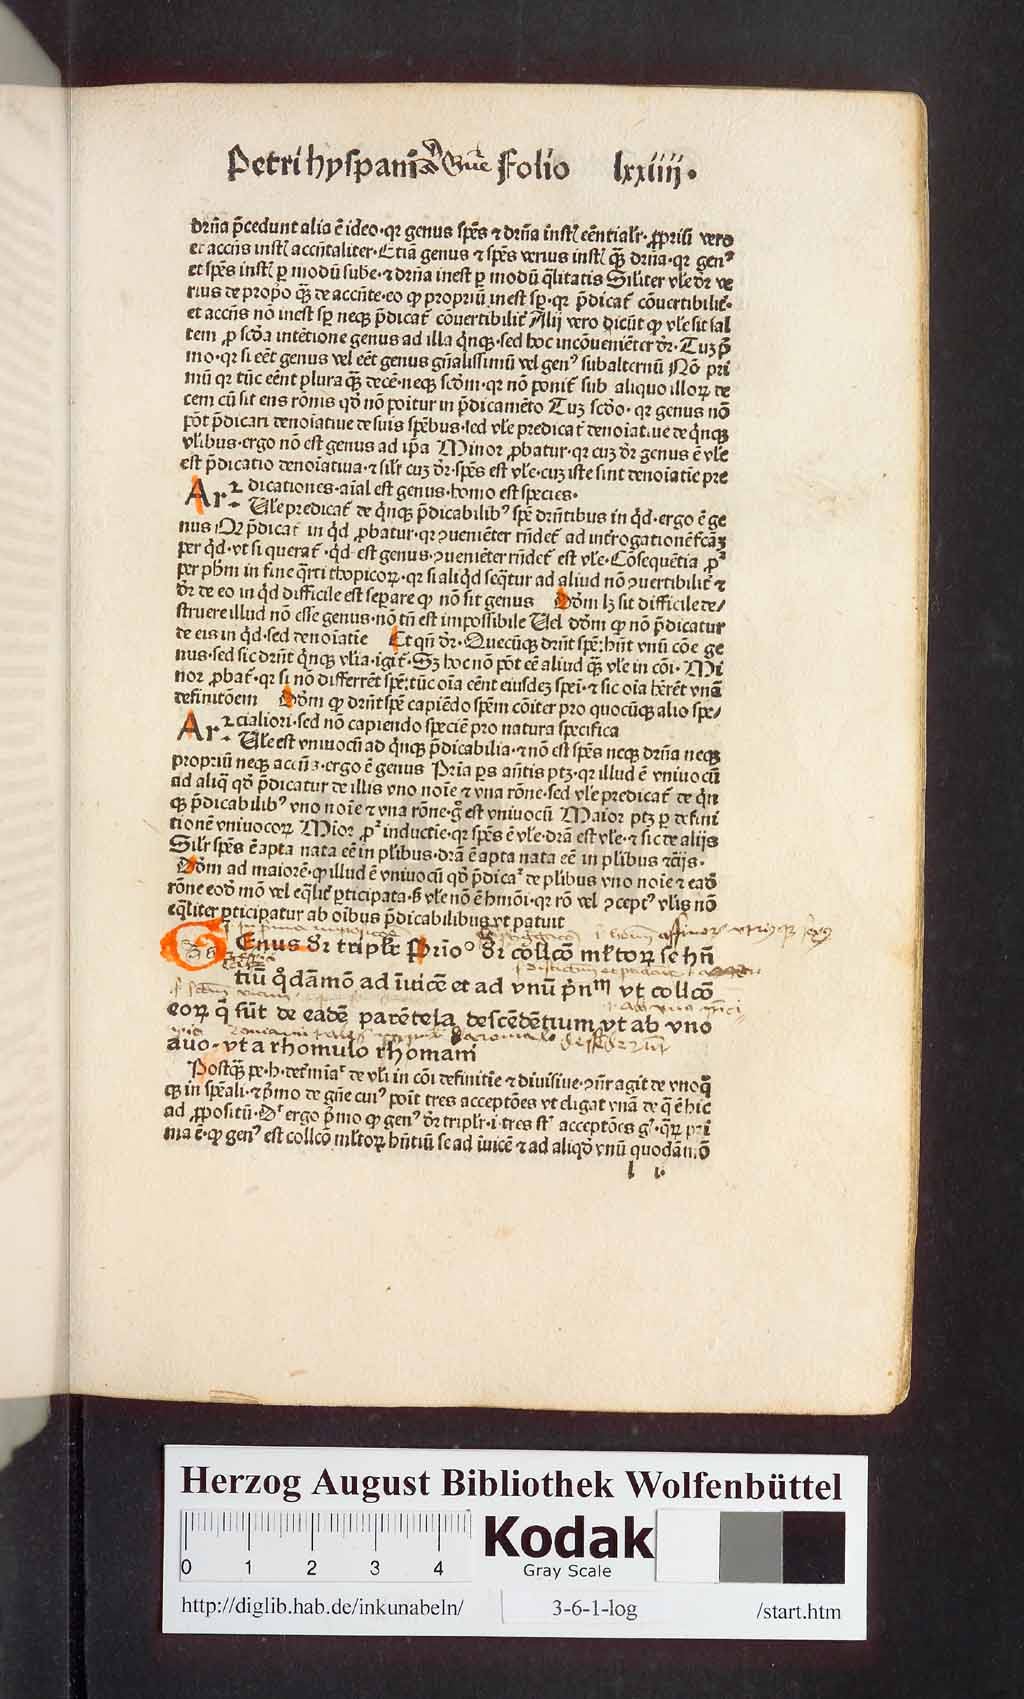 Petri hyspani Folio lxxiiii.
drña p̄cedunt alia ē ideo·qr genus spēs ⁊ drña inst̄ eēntialr̄· ꝓpriū vero
et accñs inst̄ accñtaliter·Etiā genus ⁊ spēs verius inst̄ q̄ꝫ drña·qr gen⁹
et spēs inst̄ ꝑ modū sube·⁊ drña inest ꝑ modū q̄litatis Siliter vle dr̄ ve
rius de propo q̄ꝫ de accñte·eo ꝙ propriū inest sp̄·qr p̄dicat̄ cōuertibilit̄·
et accñs nō inest sp̄ neqꝫ p̄dicat̄ cōuertibilit̄ Alij vero dicūt ꝙ vle sit sal
tem ꝓ scďa intētione genus ad illa q̇nqꝫ·sed hoc incōueniēter dr̄·Tuꝫ p̄
mo·qr si eēt genus vel eēt genus gñalissimū vel gen⁹ subalternū Nō pri
mū qr tūc eēnt plura q̄ꝫ decē·neqꝫ scďm·qr nō ponit̄ sub aliquo illoꝝ de
cem cū sit ens rōnis qď nō poītur in p̄dicamēto Tuꝫ scďo·qr genus nō
pōt p̄dicari denoīatiue de suis spēbus·sed vle predicat̄ denoīatiue de q̇nqꝫ
vlibus·ergo nō est genus ad ip̄a Minor ꝓbatur·qr cuꝫ dr̄ genus ē vle
est p̄dicatio denoīatiua·⁊ silr̄ cuꝫ dr̄·spēs est vle·cuꝫ iste sint denoīatīe pre
Ar ꝛ dicationes·aīal est genus·homo est species·
Vle predicat̄ de q̇nqꝫ p̄dicabilib⁹ spē drñtibus in q̇d·ergo ē ge
nus Qꝛ p̄dicat̄ in q̇d ꝓbatur·qr ꝯueniēter rñdet̄ ad introgationē fcāꝫ
per q̇d·vt si querat̄·q̇d est genus·ꝯueniēter rñdet̄ est vle·Cōsequētia ꝓꝫ
per phm̄ in fine q̄rti thopicoꝝ·qr si aliq̇d seq̄tur ad aliud nō ꝯuertibilit̄ ⁊
dr̄ de eo in q̇d difficile est seꝑare ꝙ nō sit genus Dōm lꝫ sit difficile de/
struere illud nō esse genus·nō tñ est impossibile Vel dōm ꝙ nō p̄dicatur
de eis in q̇d·sed denoīatīe Et qñ dr̄·Quecūqꝫ drñt spē·hñt vnū cōe ge
nus·sed sic drñt q̇nqꝫ vlia·igit̄·Sꝫ hoc nō pōt eē aliud q̄ꝫ vle in cōi·Mi
nor ꝓbat̄·qr si nō differrēt spē·tūc oīa eēnt eiusdeꝫ spei·⁊ sic oīa hērēt vnā
definitōem Dōm ꝙ drñt spē capiēdo spēm cōiter pro quocūqꝫ alio spe/
Ar ꝛ cialiori·sed nō capiendo speciē pro natura specifica
Vle est vniuocū ad q̇nqꝫ p̄dicabilia·⁊ nō est spēs neqꝫ drña neqꝫ
propriū neqꝫ accñs·ergo ē genus Pria ꝑs añtis ptꝫ·qr illud ē vniuocū
ad aliq̄ qď p̄dicatur de illis vno noīe ⁊ vna rōne·sed vle predicat̄ de q̇n
qꝫ p̄dicabilib⁹ vno noīe ⁊ vna rōne·g̊ est vniuocū Maior ptꝫ ꝑ defini
tionē vniuocoꝝ Mīor ꝓꝫ inductīe·qr spēs ē vle·drā est vle·⁊ sic de aliis
Silr̄ spēs ē apta nata eē in plibus·drā ē apta nata eē in plibus ⁊c̄ijs·
Dōm ad maiorē·ꝙ illud ē vniuocū qď p̄dicaꝫ de plibus vno noīe ⁊ eadē
rōne eodē mō vel eq̄lit̄ ꝑticipata·ß vle nō ē hmōi·qr rō vel ꝯcept⁹ vlis nō
eq̄liter ꝑticipatur ab oībus p̄dicabilibus vt patuit
GEnus dr̄ triplr̄ Prio° dr̄ collcō ml̄toꝝ se hñ
tiū q̊dāmō ad īuicē et ad vnū p̄nᵐ vt collcō
eoꝝ q̄ sūt de eadē parētela descēdētium vt ab vno
auo·vt a rhomulo rhomani
Postq̄ꝫ pe·h·det̄mīaꝫ de vli in cōi definitīe ⁊ diuisiue·ꝯñr agit de vnoq̄
qꝫ in spēali·⁊ p̄mo de gñe cui⁹ poīt tres acceptōes vt eligat vnā de q̄ ē hic
ad ꝓpositū·Dꝫ ergo p̄mo ꝙ gen⁹ dr̄ triplr̄·i·tres st̄ acceptōes g̊·q̄ꝝ pri
ma ē·ꝙ gen⁹ est collcō ml̄toꝝ hñtiū se ad īuicē ⁊ ad aliqď vnū quodāmō
l i·
Herzog August Bibliothek Wolfenbüttel
0 1 2 3 4
Kodak
Gray Scale
http://diglib.hab.de/inkunabeln/ 3-6-1-log /start.htm